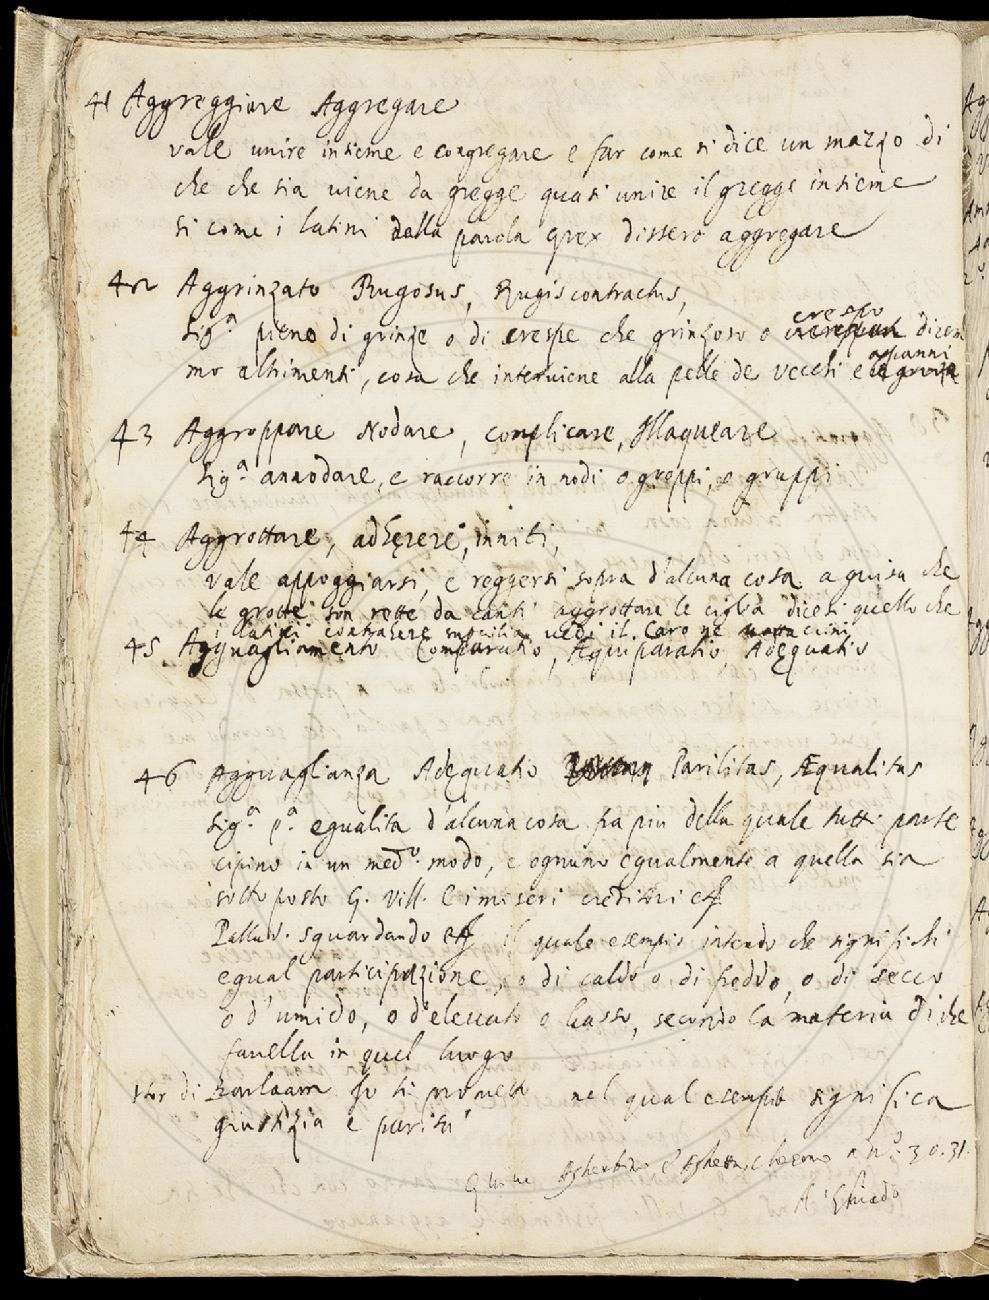 41 Aggreggiare Aggregare
vale unire insieme e congregare e far come si dice un mazzo di
che che sia viene da gregge quasi unire il gregge insieme
si come i latini dalla parola grex dissero aggregare
42 Aggrinzato Rugosus, Rugis contractus,
sig.ª pieno di grinze o di crespe che grinzoso o crespo dicia
mo altrimenti, cosa che interviene alla pelle de vecchi e a panni
43 Aggroppare Nodare, complicare, Illaqueare
sig.ª annodare, e raccorre in nodi o groppi, o gruppi
44 Aggrottare, adherere, inniti,
vale appoggiarsi, e reggersi sopra d'alcuna cosa a guisa che
le grotte son rette da canti aggrottare le ciglia dicesi quello che
i latini contrahere supercilia vedi il Caro ne mattaccini
45 Agguagliamento Comparatio, Æquiparatio, Adequatio
46 Agguaglianza Adequatio Parilitas, Æqualitas
sig.ª egualità d'alcuna cosa fra più della quale tutti parte
cipino in un med.º modo, e ognuno egualmente a quella sia
sottoposto G. Vill. E i miseri creditori
Pallad. sguardando il quale esempio intendo che significhi
egual participazione, o di caldo o di freddo, o di secco
o d'umido, o d'elevato o basso, secondo la materia di che
favella in quel luogo
Stor di Barlaam Io ti prometto nel qual esempio significa
giustizia e parità
a n.º 30.31.